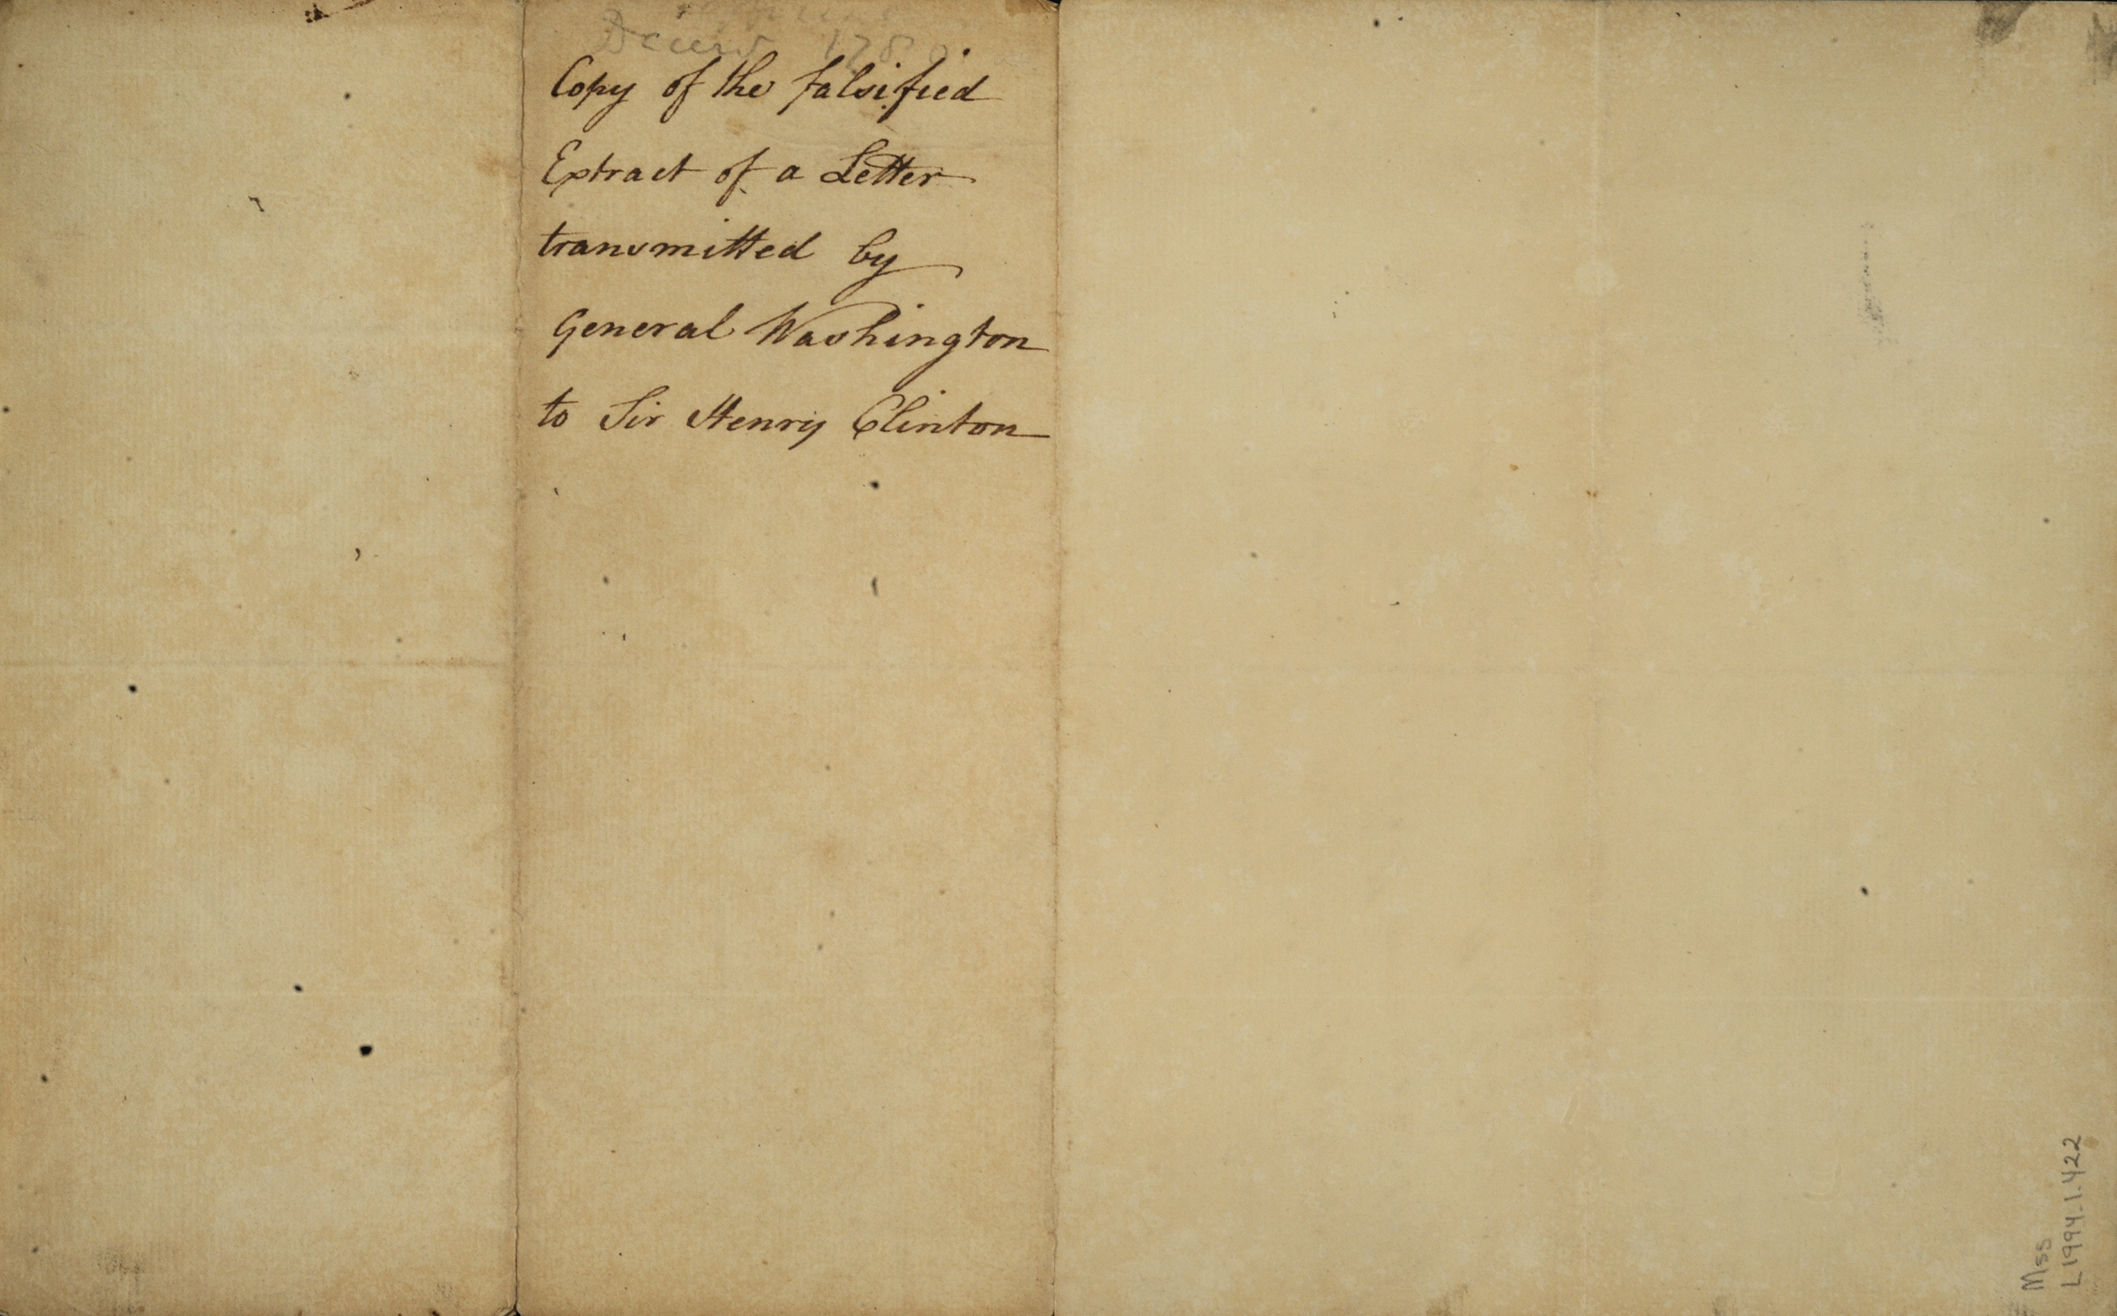 Copy of the falsified
Extract of a Letter
transmitted by
General Washington
to Sir Henry Clinton
Mss
L1994.1.422